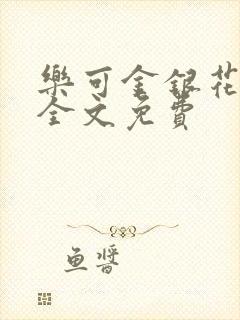 樂可金銀花
全文免費
魚醬